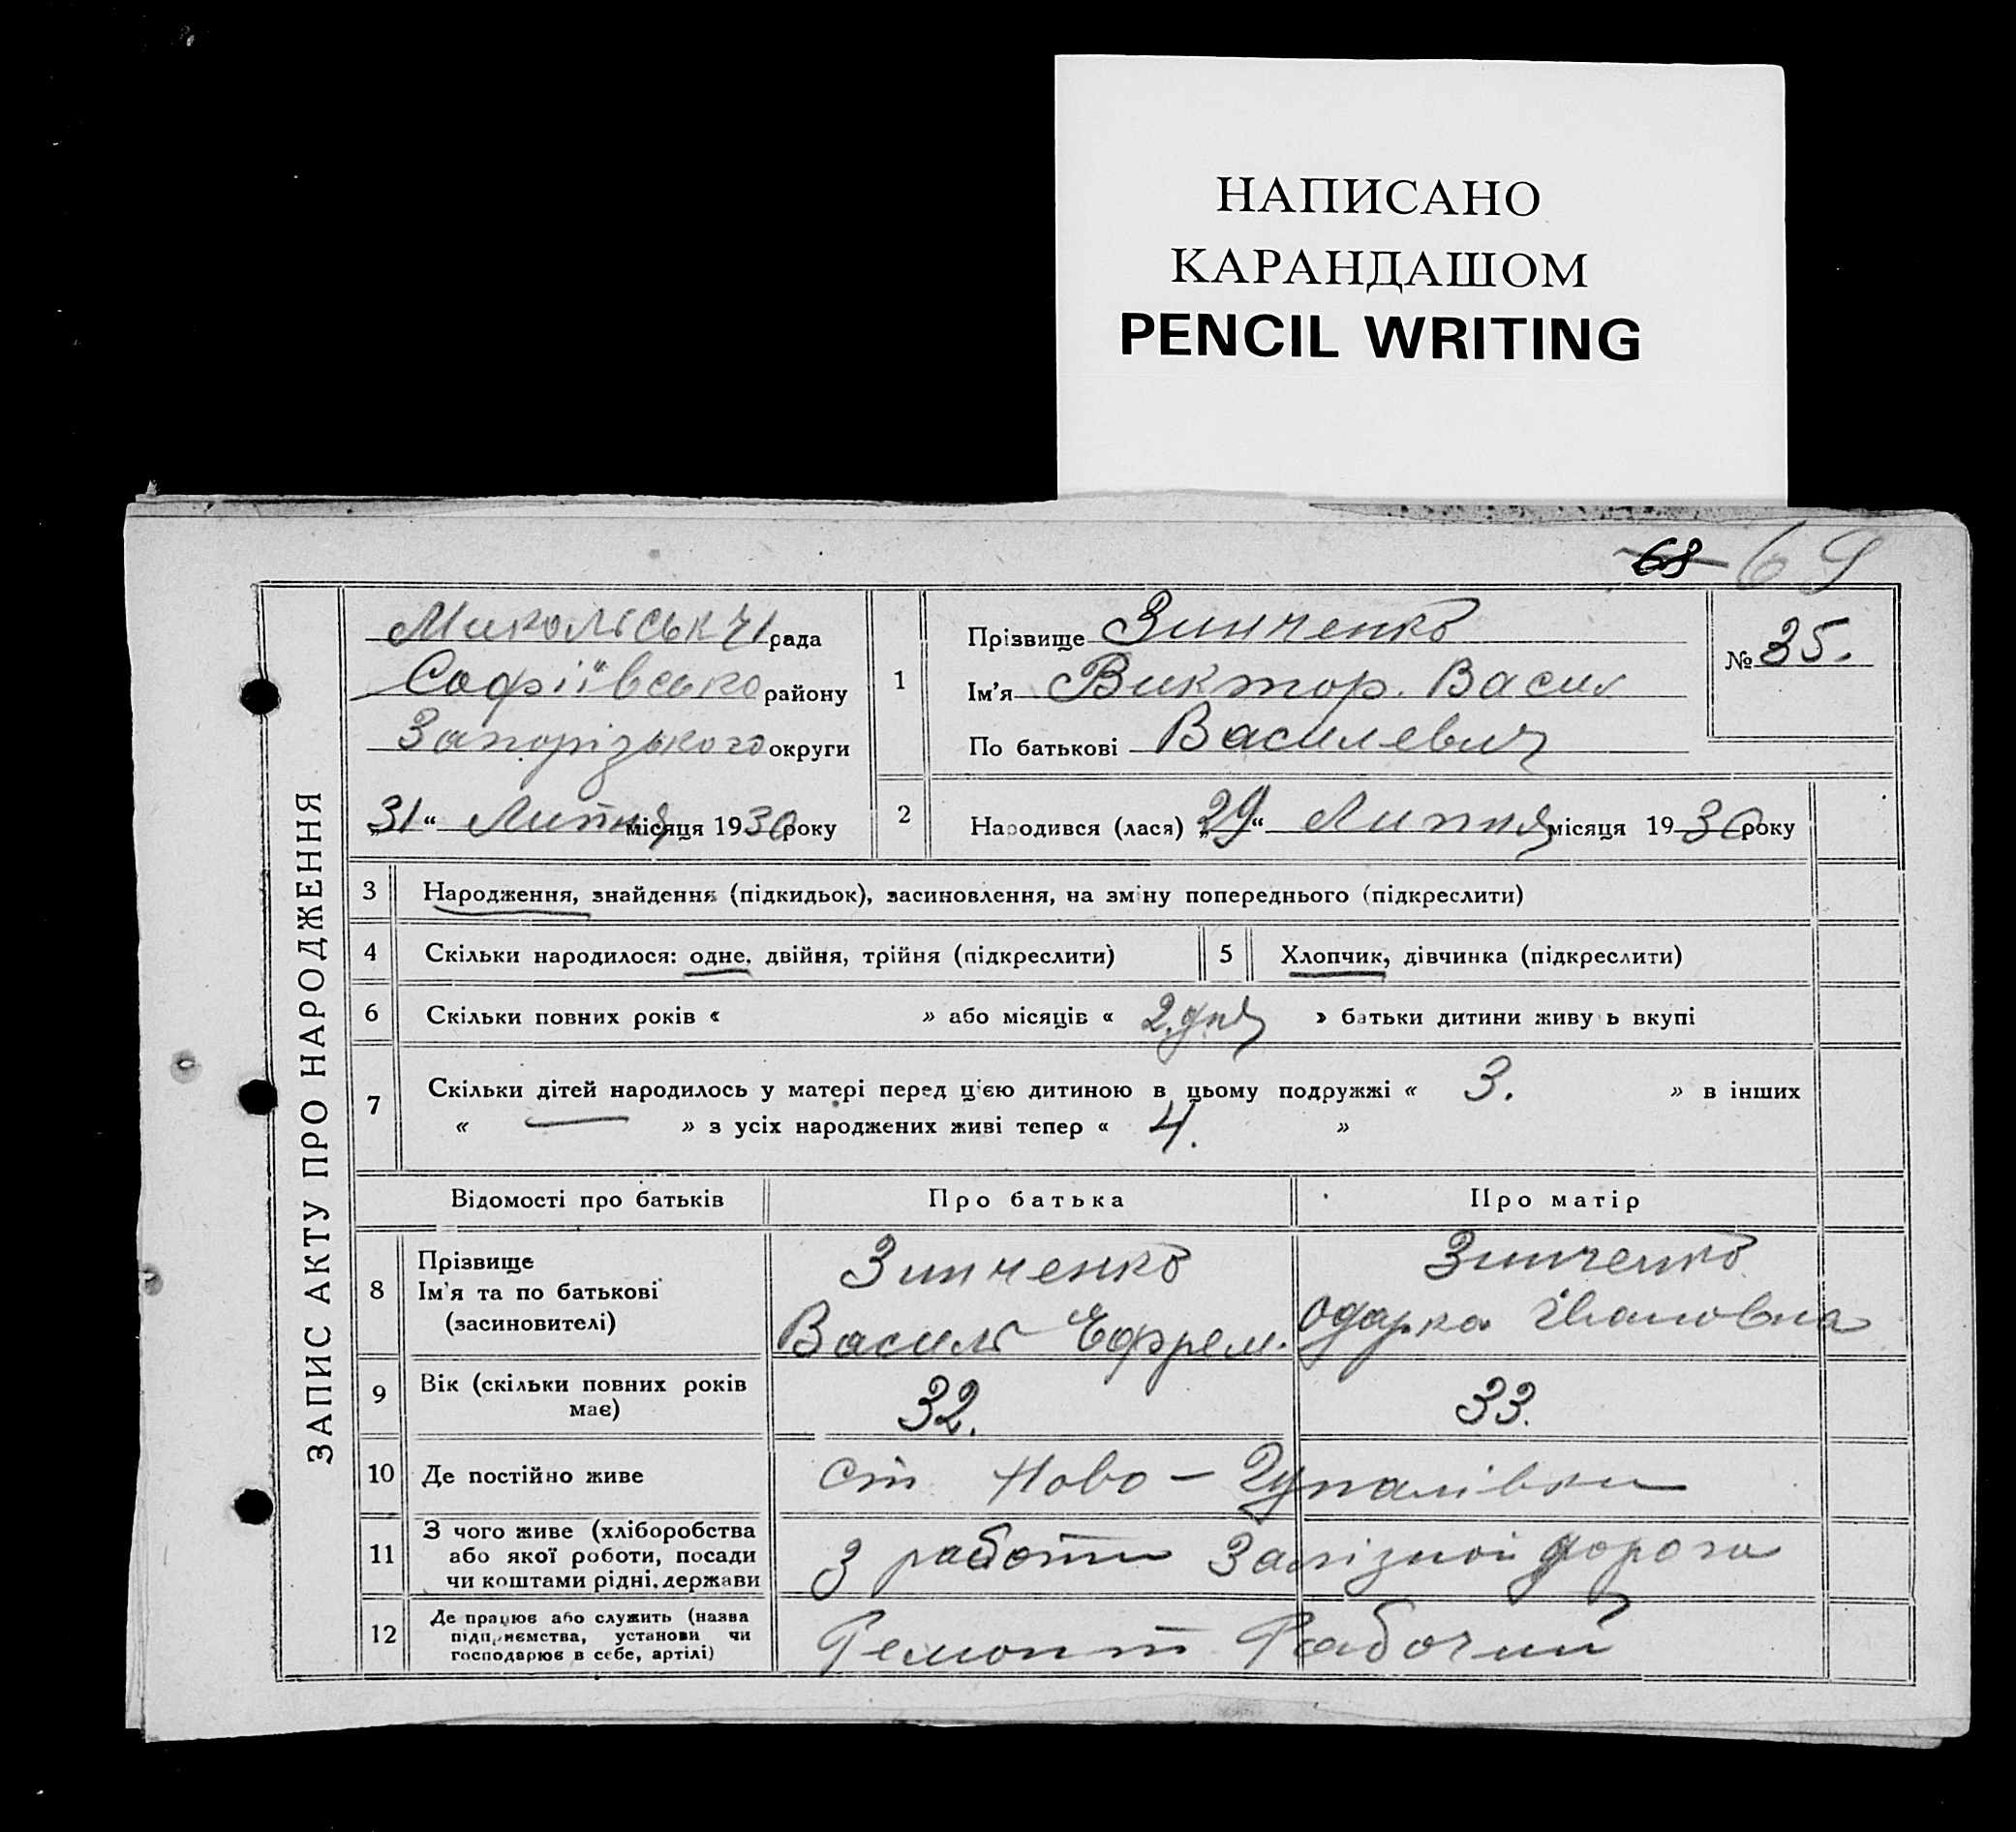 НАПИСАНО
КАРАНДАШОМ
PENCIL WRITING
68 69
ЗАПИС АКТУ ПРО НАРОДЖЕННЯ
рада
Софіївсько району
Запорізького округи
„31“ Липня місяця 1930 року
1
Прізвище Зинченко
Ім'я Виктор. Васил
По батькові Василевич
№ 35.
2
Народився (лася) „29“ Липня місяця 1930 року
3 Народження, знайдення (підкидьок), засиновлення, на зміну попереднього (підкреслити)
4 Скільки народилося: одне, двійня, трійня (підкреслити) 5 Хлопчик, дівчинка (підкреслити)
6 Скільки повних років « » або місяців « 2 дня » батьки дитини живу ь вкупі
7 Скільки дітей народилось у матері перед цією дитиною в цьому подружжі « 3. » в інших
« — » з усіх народжених живі тепер « 4. »
Відомості про батьків Про батька Про матір
8 Прізвище
Ім'я та по батькові
(засиновителі)
Зинченко
Василь Ефрем.
Зинченко
Одарка Ивановна
9 Вік (скільки повних років
має)
32. 33.
10 Де постійно живе ст. Ново-
11 З чого живе (хліборобства
або якої роботи, посади
чи коштами рідні, держави
З работи Залізної дороги
12 Де працює або служить (назва
підприємства, установи чи
господарює в себе, артілі)
Ремонт Рабочий